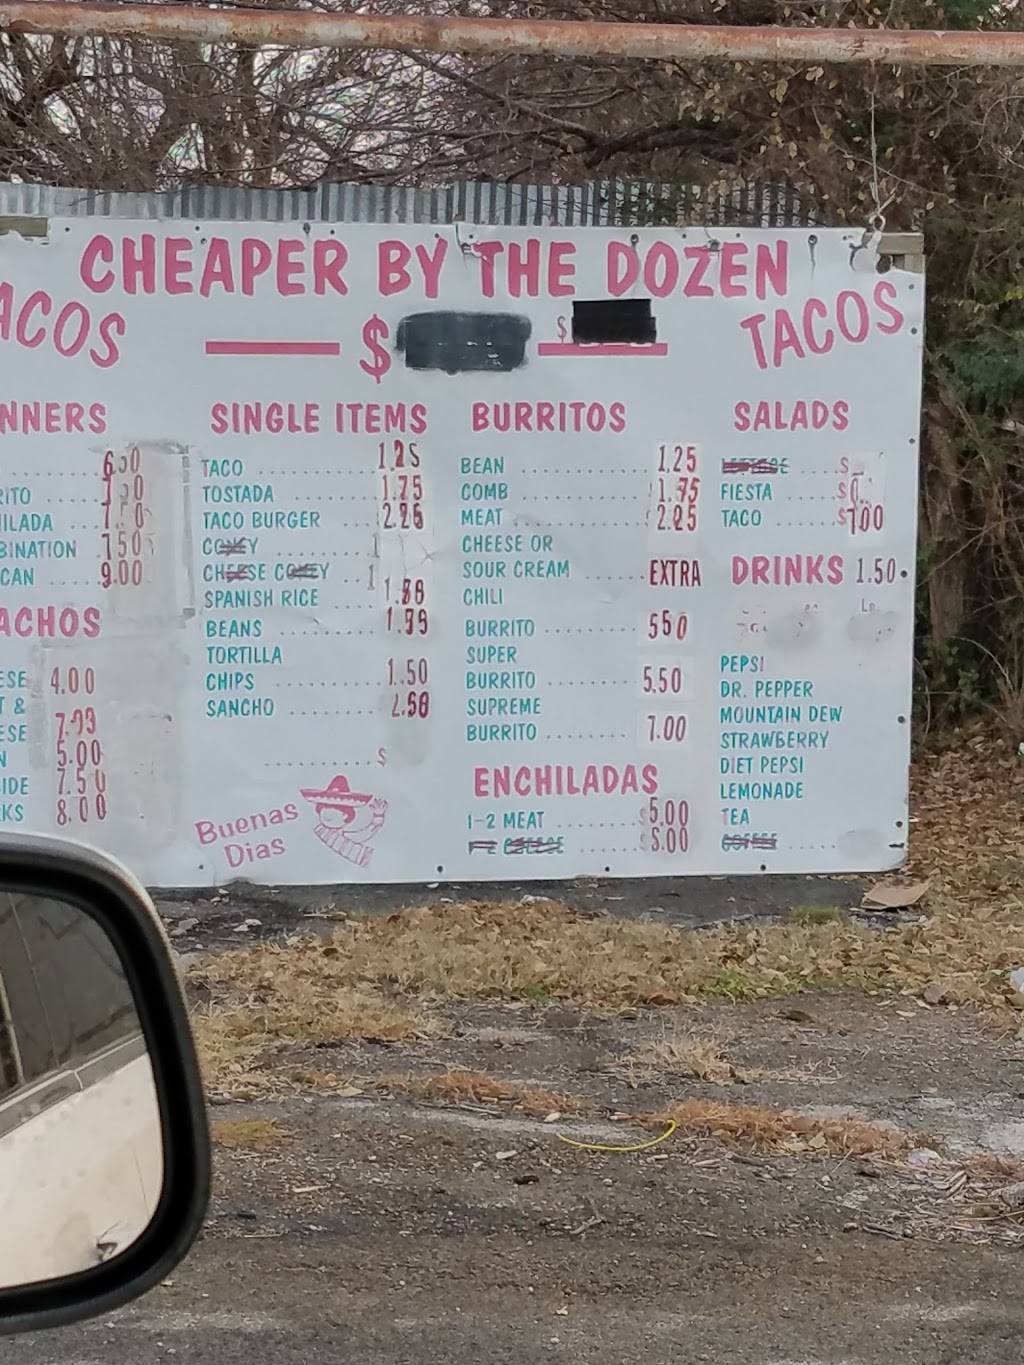 CHEAPER BY THE DOZEN
ACOS $ $ TACOS
NNERS
RITO
HILADA
BINATION 7.50
CAN 9.00
ACHOS
ESE 4.00
T &
ESE
N 5.00
IDE 7.50
KS 8.00
SINGLE ITEMS
TACO 1.25
TOSTADA 1.75
TACO BURGER
SPANISH RICE
BEANS
TORTILLA
CHIPS 1.50
SANCHO
$
Buenas
Dias
BURRITOS
BEAN 1.25
COMB 1.75
MEAT 2.25
CHEESE OR
SOUR CREAM EXTRA
CHILI
BURRITO 5.50
SUPER
BURRITO 5.50
SUPREME
BURRITO 7.00
ENCHILADAS
1-2 MEAT $5.00
1-2 CHEESE
SALADS
FIESTA
TACO
DRINKS 1.50
PEPSI
DR. PEPPER
MOUNTAIN DEW
STRAWBERRY
DIET PEPSI
LEMONADE
TEA
COFFEE